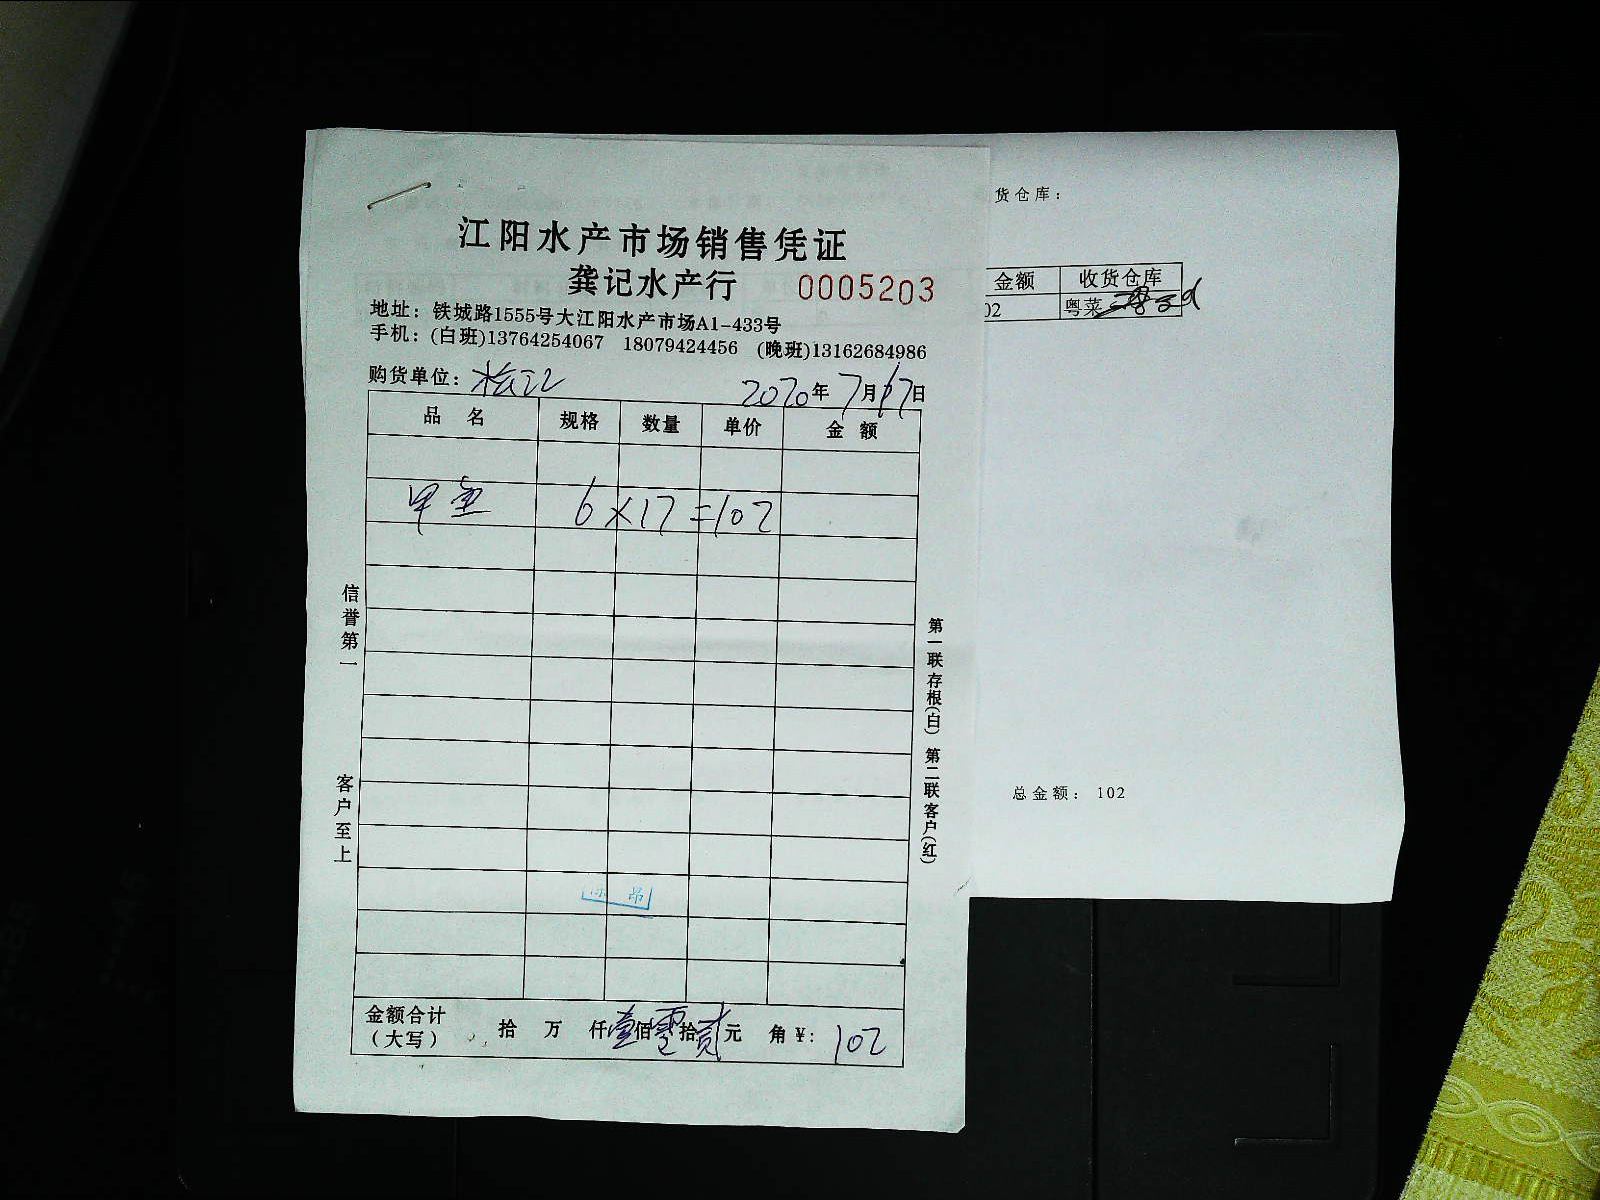 江阳水产市场销售凭证
龚记水产行 0005203
地址：铁城路1555号大江阳水产市场A1-433号
手机：(白班)13764254067 18079424456 (晚班)13162684986
购货单位： 2020年7月17日
品名 规格 数量 单价 金额
甲鱼 6×17=102
金额合计（大写） 拾 万 仟壹佰零拾贰元 角￥：102
信誉第一
客户至上
第一联存根(白) 第二联客户(红)
货仓库：
金额 收货仓库
02 粤菜
总金额： 102